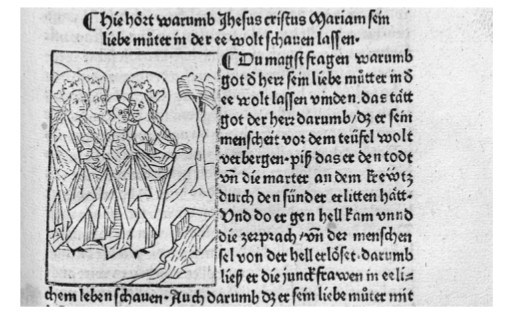 ¶ Hie hört warumb Jhesus cristus Mariam sein
liebe můter in der ee wolt schauen lassen.
¶ Du magst fragen warumb
got d̕ herr sein liebe můtter in d̕
ee wolt lassen vinden. das tått
got der herr darumb/dz er sein
menscheit vor dem teüfel wolt
verbergen. piß das er den todt
vn̄ die marter an dem krewtz
durch den sünder erlitten hått.
Vnd do er gen hell kam vnnd
die zerprach/vn̄ der menschen
sel von der hell erlöset. darumb
ließ er die junckfrawen in eeli-
chem leben schauen. Auch darumb dz er sein liebe můter mit